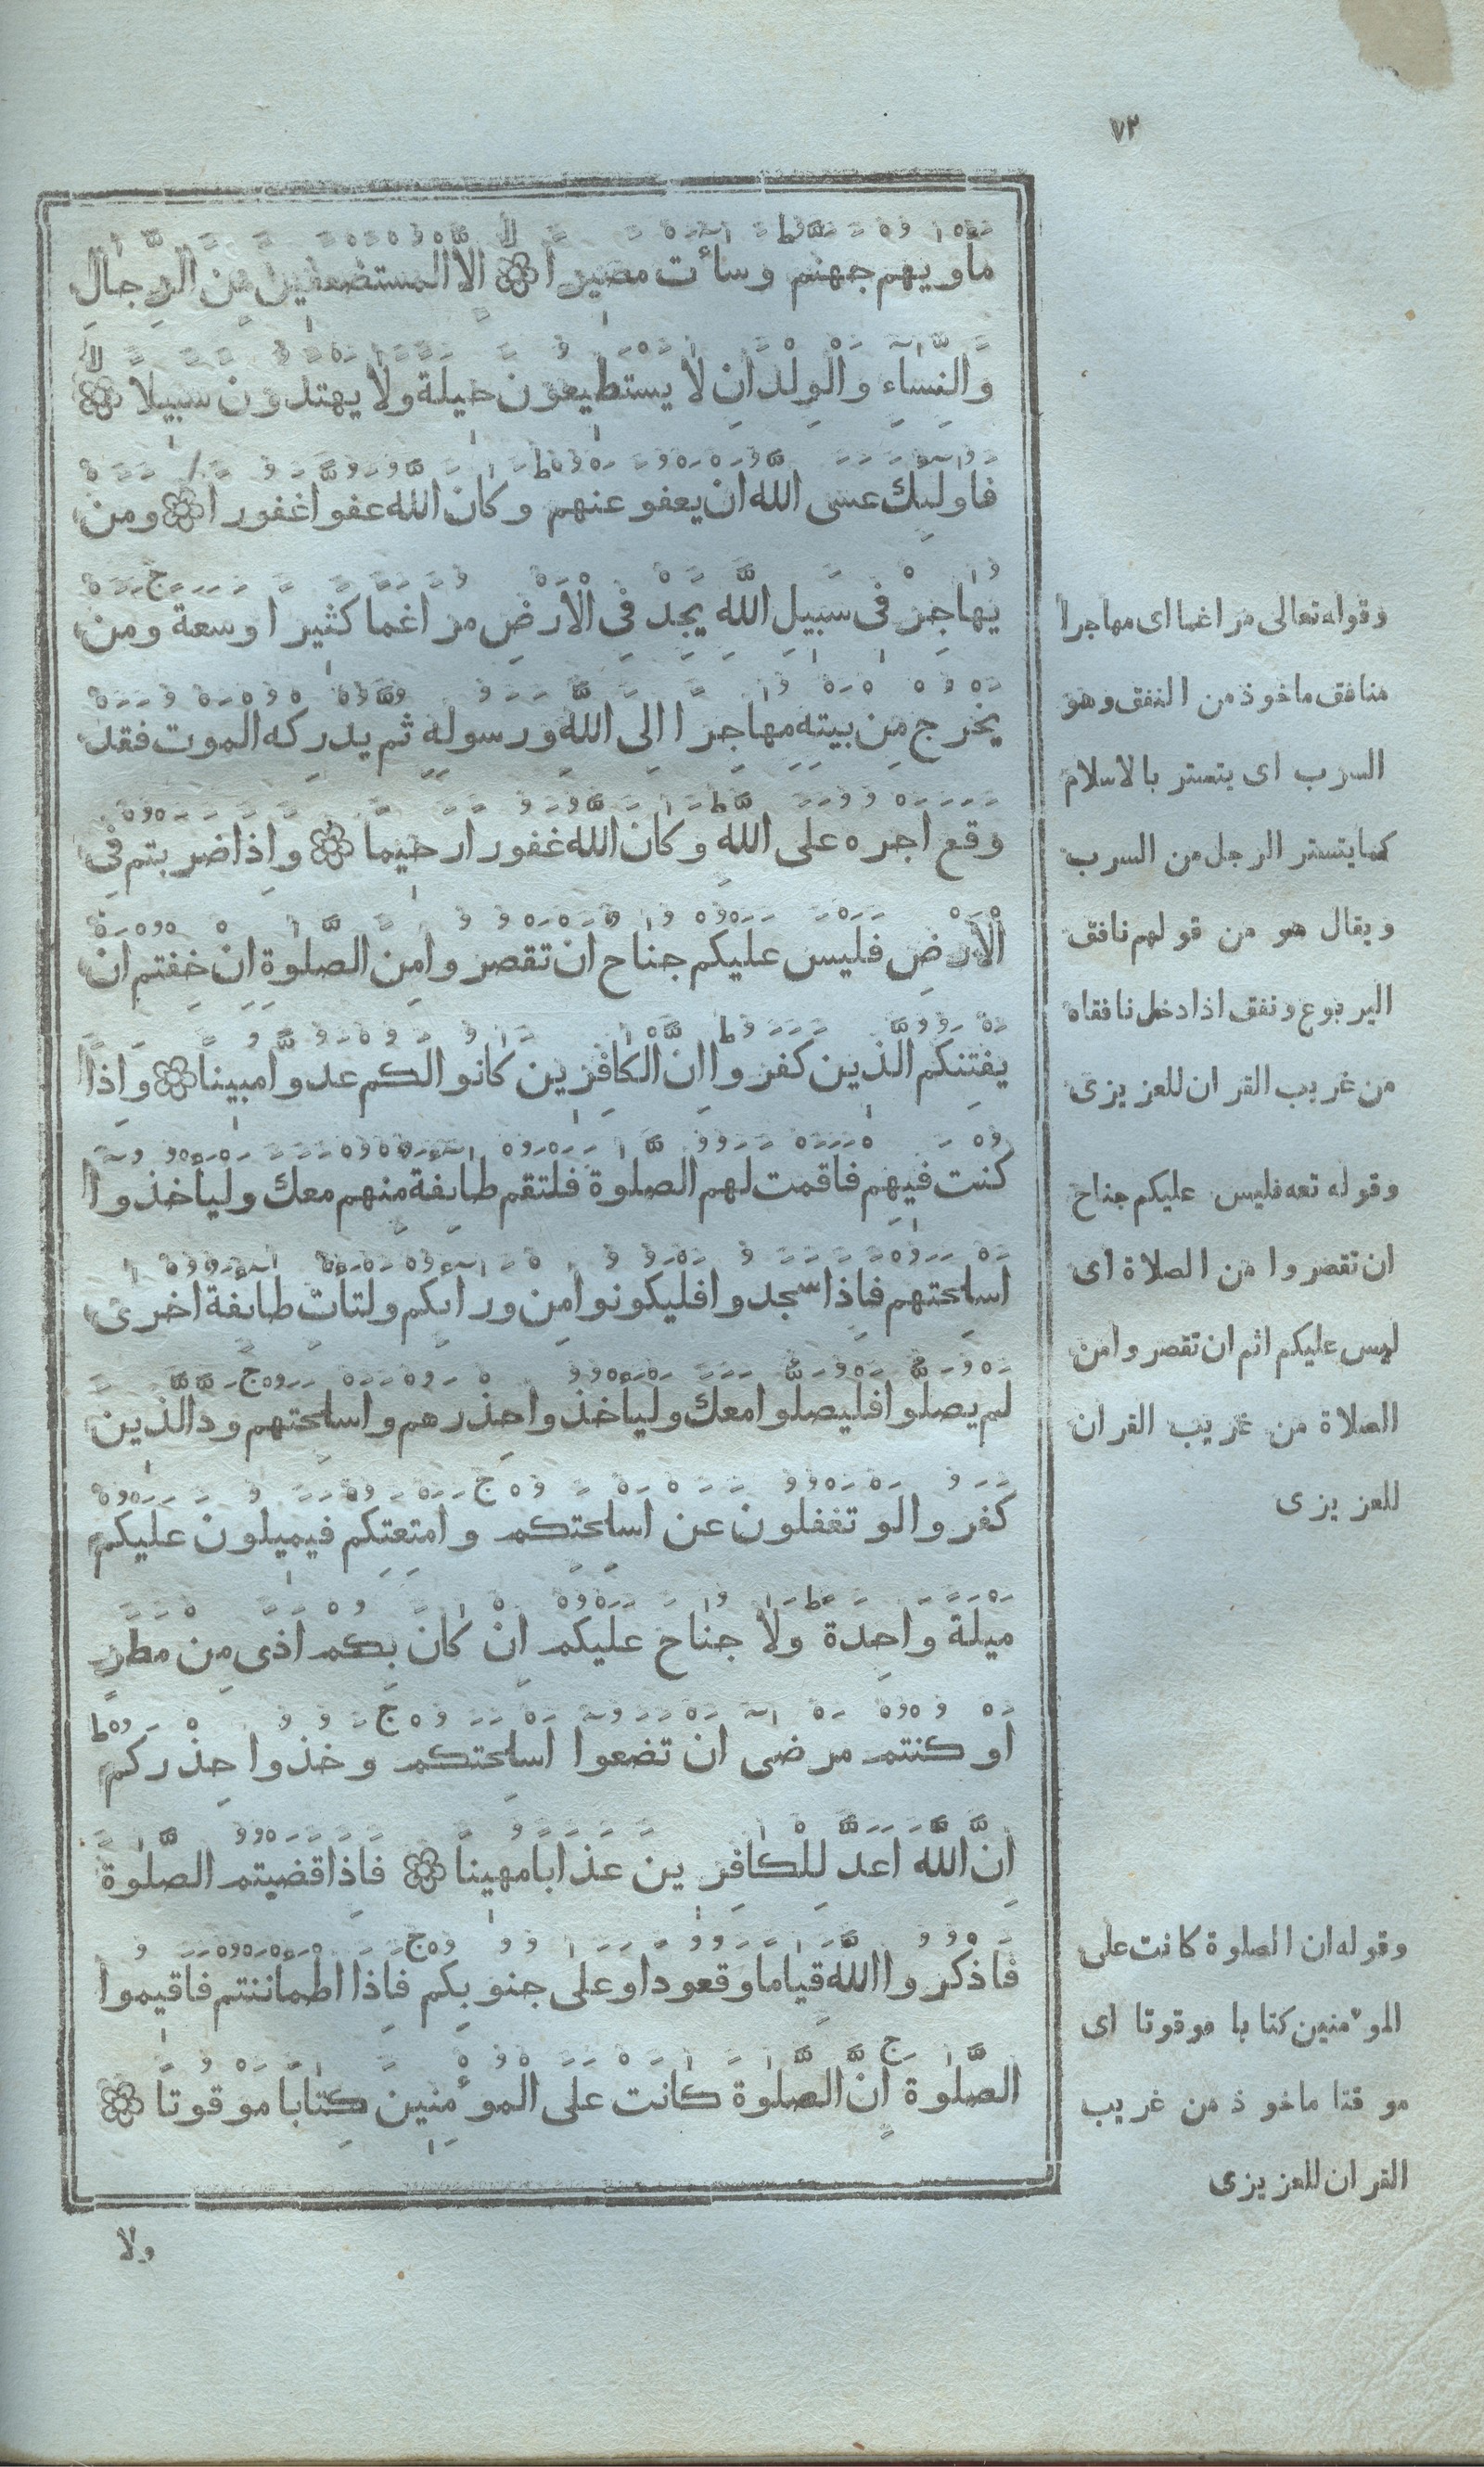 ٧٢
مأويهم جهنم وسأت مصيرا الا المستضعفين من الرجال
والنساء والولدان لا يستطيعون حيلة ولا يهتدون سبيلا
فاوليك عسى الله ان يعفو عنهم وكان الله عفوا غفورا ومن
يهاجر في سبيل الله يجد في الارض مراغما كثيرا وسعة ومن
يخرج من بيته مهاجرا الى الله ورسوله ثم يدركه الموت فقد
وقع اجره على الله وكان الله غفورا رحيما واذا ضربتم في
الارض فليس عليكم جناح ان تقصروا من الصلوة ان خفتم ان
يفتنكم الذين كفروا ان الكافرين كانوا لكم عدوا مبينا واذا
كنت فيهم فاقمت لهم الصلوة فلتقم طايفة منهم معك ولياخذوا
اسلحتهم فاذا سجدوا فليكونوا من ورايكم ولتات طايفة اخرى
لم يصلوا فليصلوا معك ولياخذوا حذرهم واسلحتهم ود الذين
كفروا لو تغفلون عن اسلحتكم وامتعتكم فيميلون عليكم
ميلة واحدة ولا جناح عليكم ان كان بكم اذى من مطر
او كنتم مرضى ان تضعوا اسلحتكم وخذوا حذركم
ان الله اعد للكافرين عذابا مهينا فاذا قضيتم الصلوة
فاذكروا الله قياما وقعودا وعلى جنوبكم فاذا اطماننتم فاقيموا
الصلوة ان الصلوة كانت على المؤمنين كتابا موقوتا
ولا
وقوله تعالى مراغما اى مهاجرا
منافق ماخوذ من النفق وهو
السرب اى يتستر بالاسلام
كما يتستر الرجل من السرب
ويقال هو من قولهم نافق
اليربوع ونفق اذا دخل نافقاه
من غريب القران للعزيزى
وقوله تعه فليس عليكم جناح
ان تقصروا من الصلاة اى
ليس عليكم اثم ان تقصروا من
الصلاة من غريب القران
للعزيزى
وقوله ان الصلوة كانت على
المؤمنين كتابا موقوتا اى
موقتا ماخوذ من غريب
القران للعزيزى